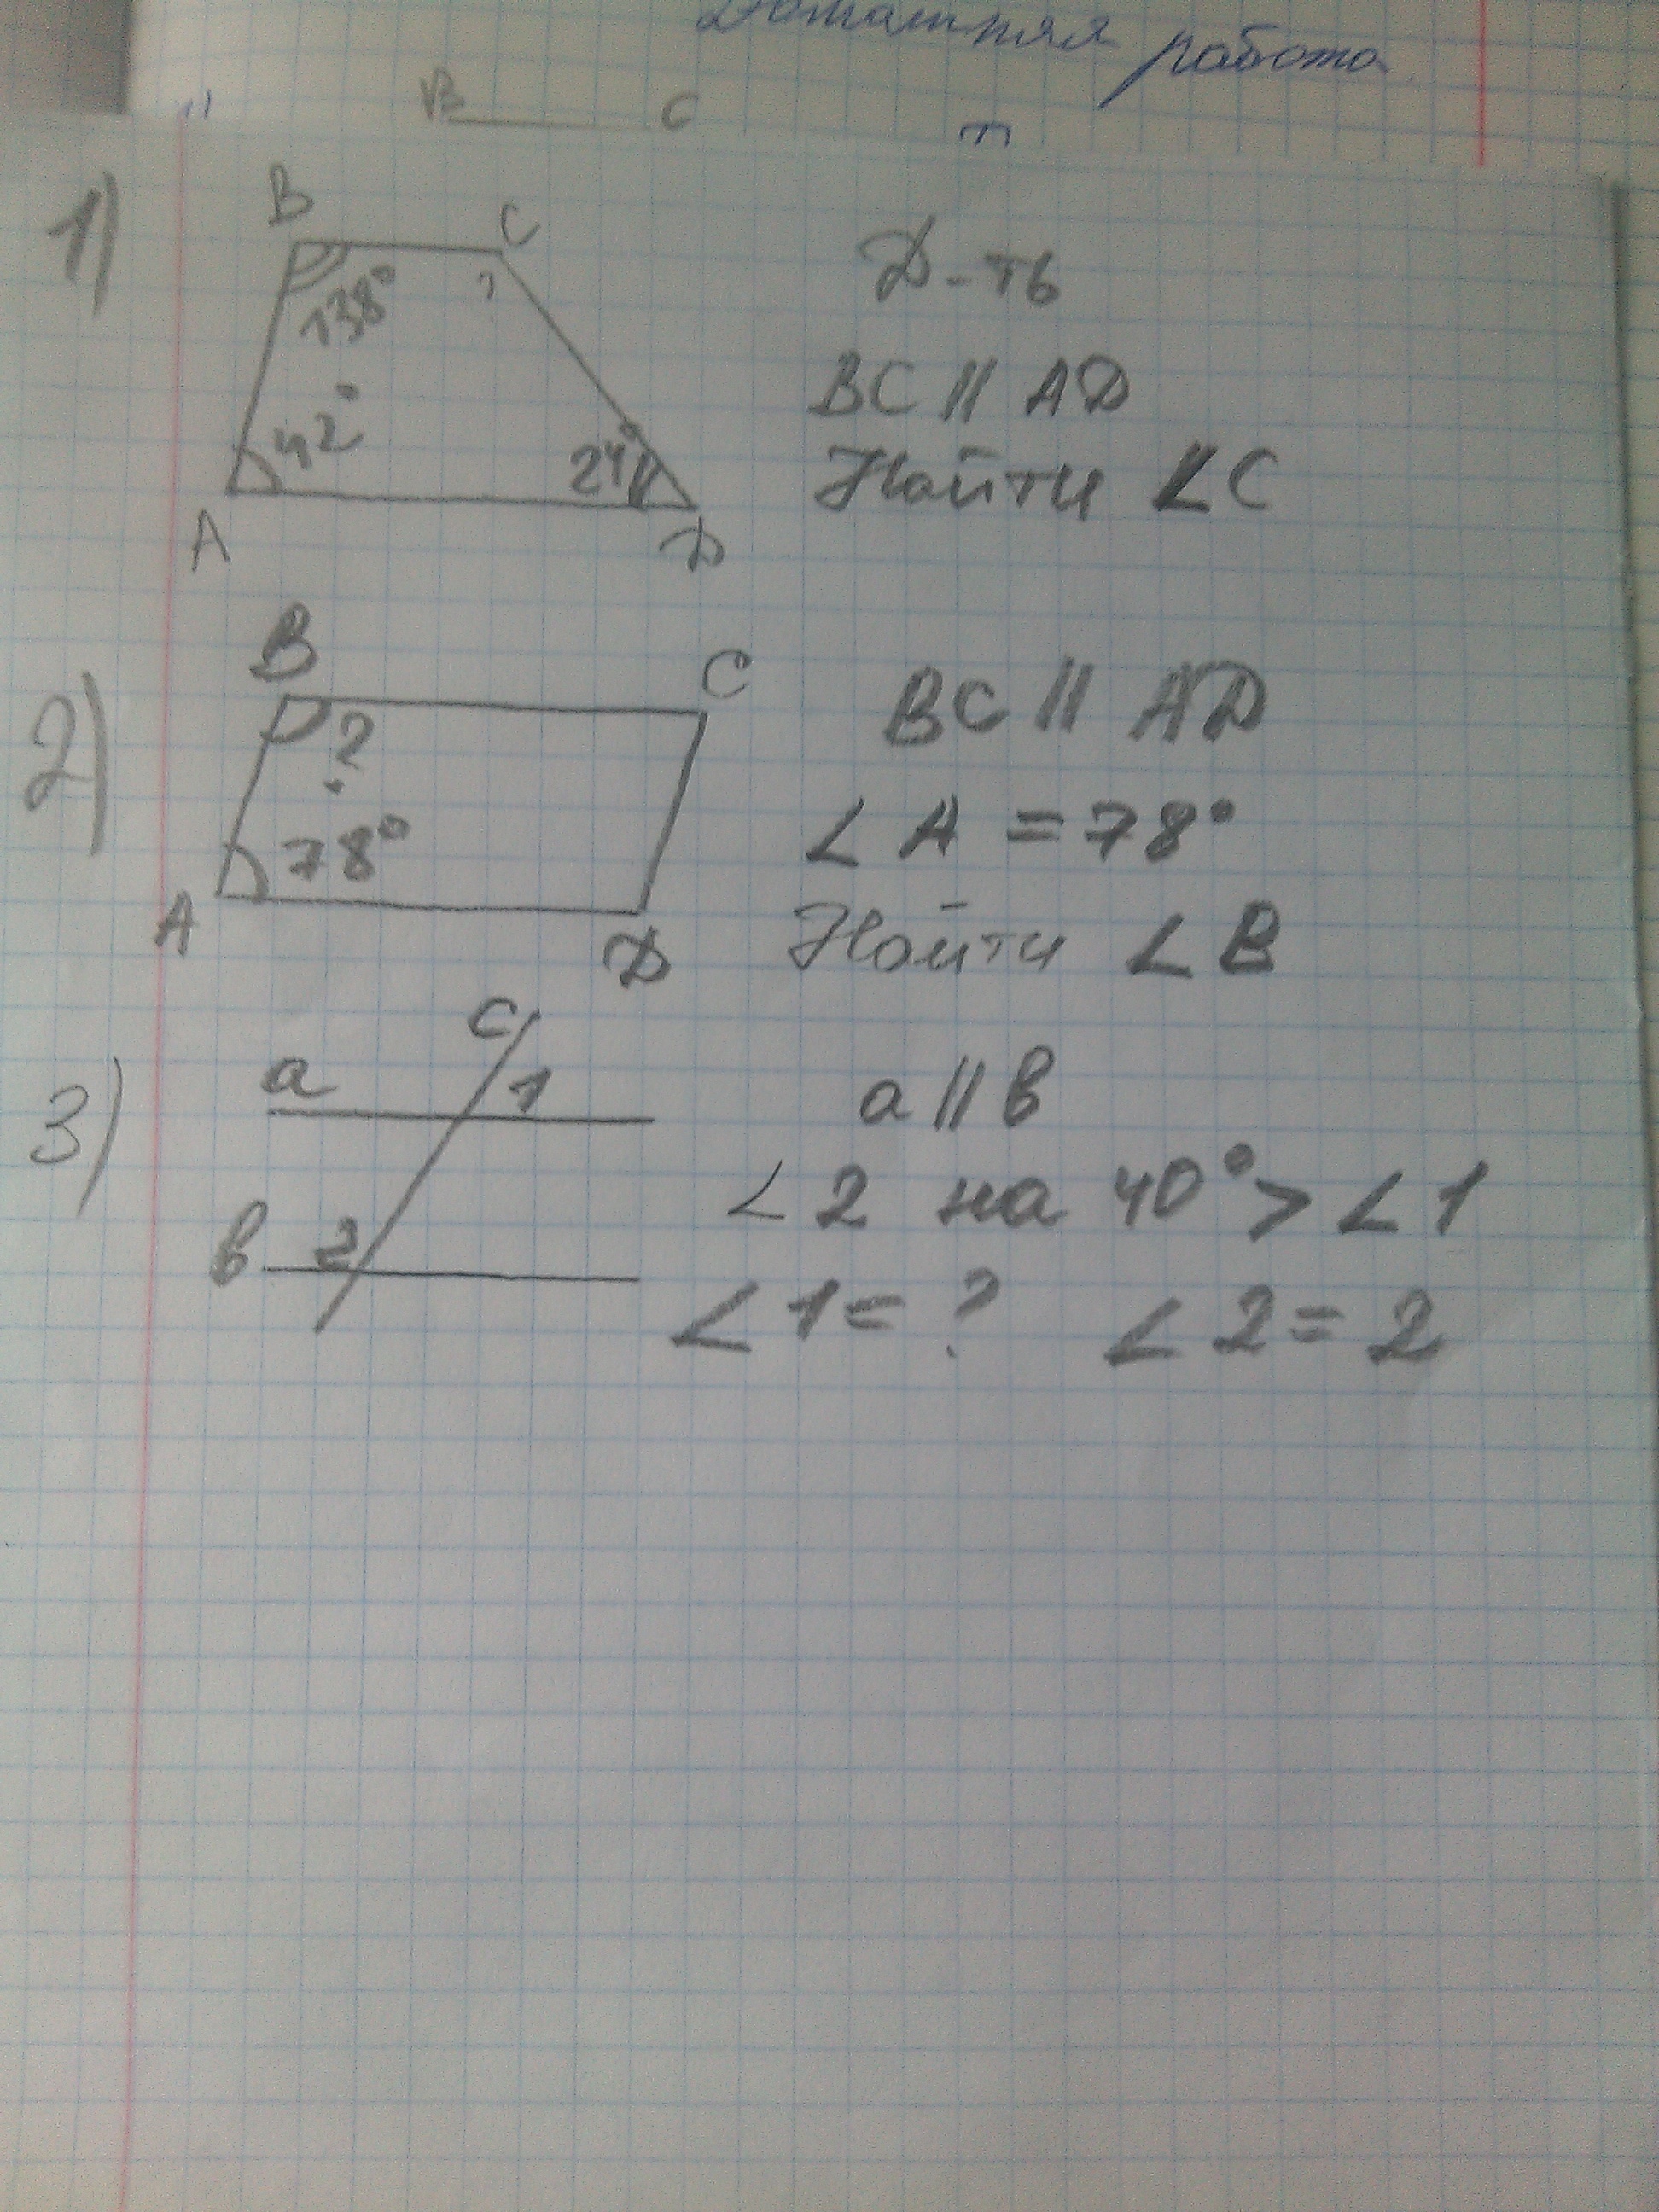 Домашняя работа
B C
1)
B C
138° ?
42° 24°
A D
D-ть
BC || AD
Найти ∠C
2)
B C
?
78°
A D
BC || AD
∠A = 78°
Найти ∠B
3)
c
a 1
b 2
a || b
∠2 на 40° > ∠1
∠1 = ? ∠2 = 2